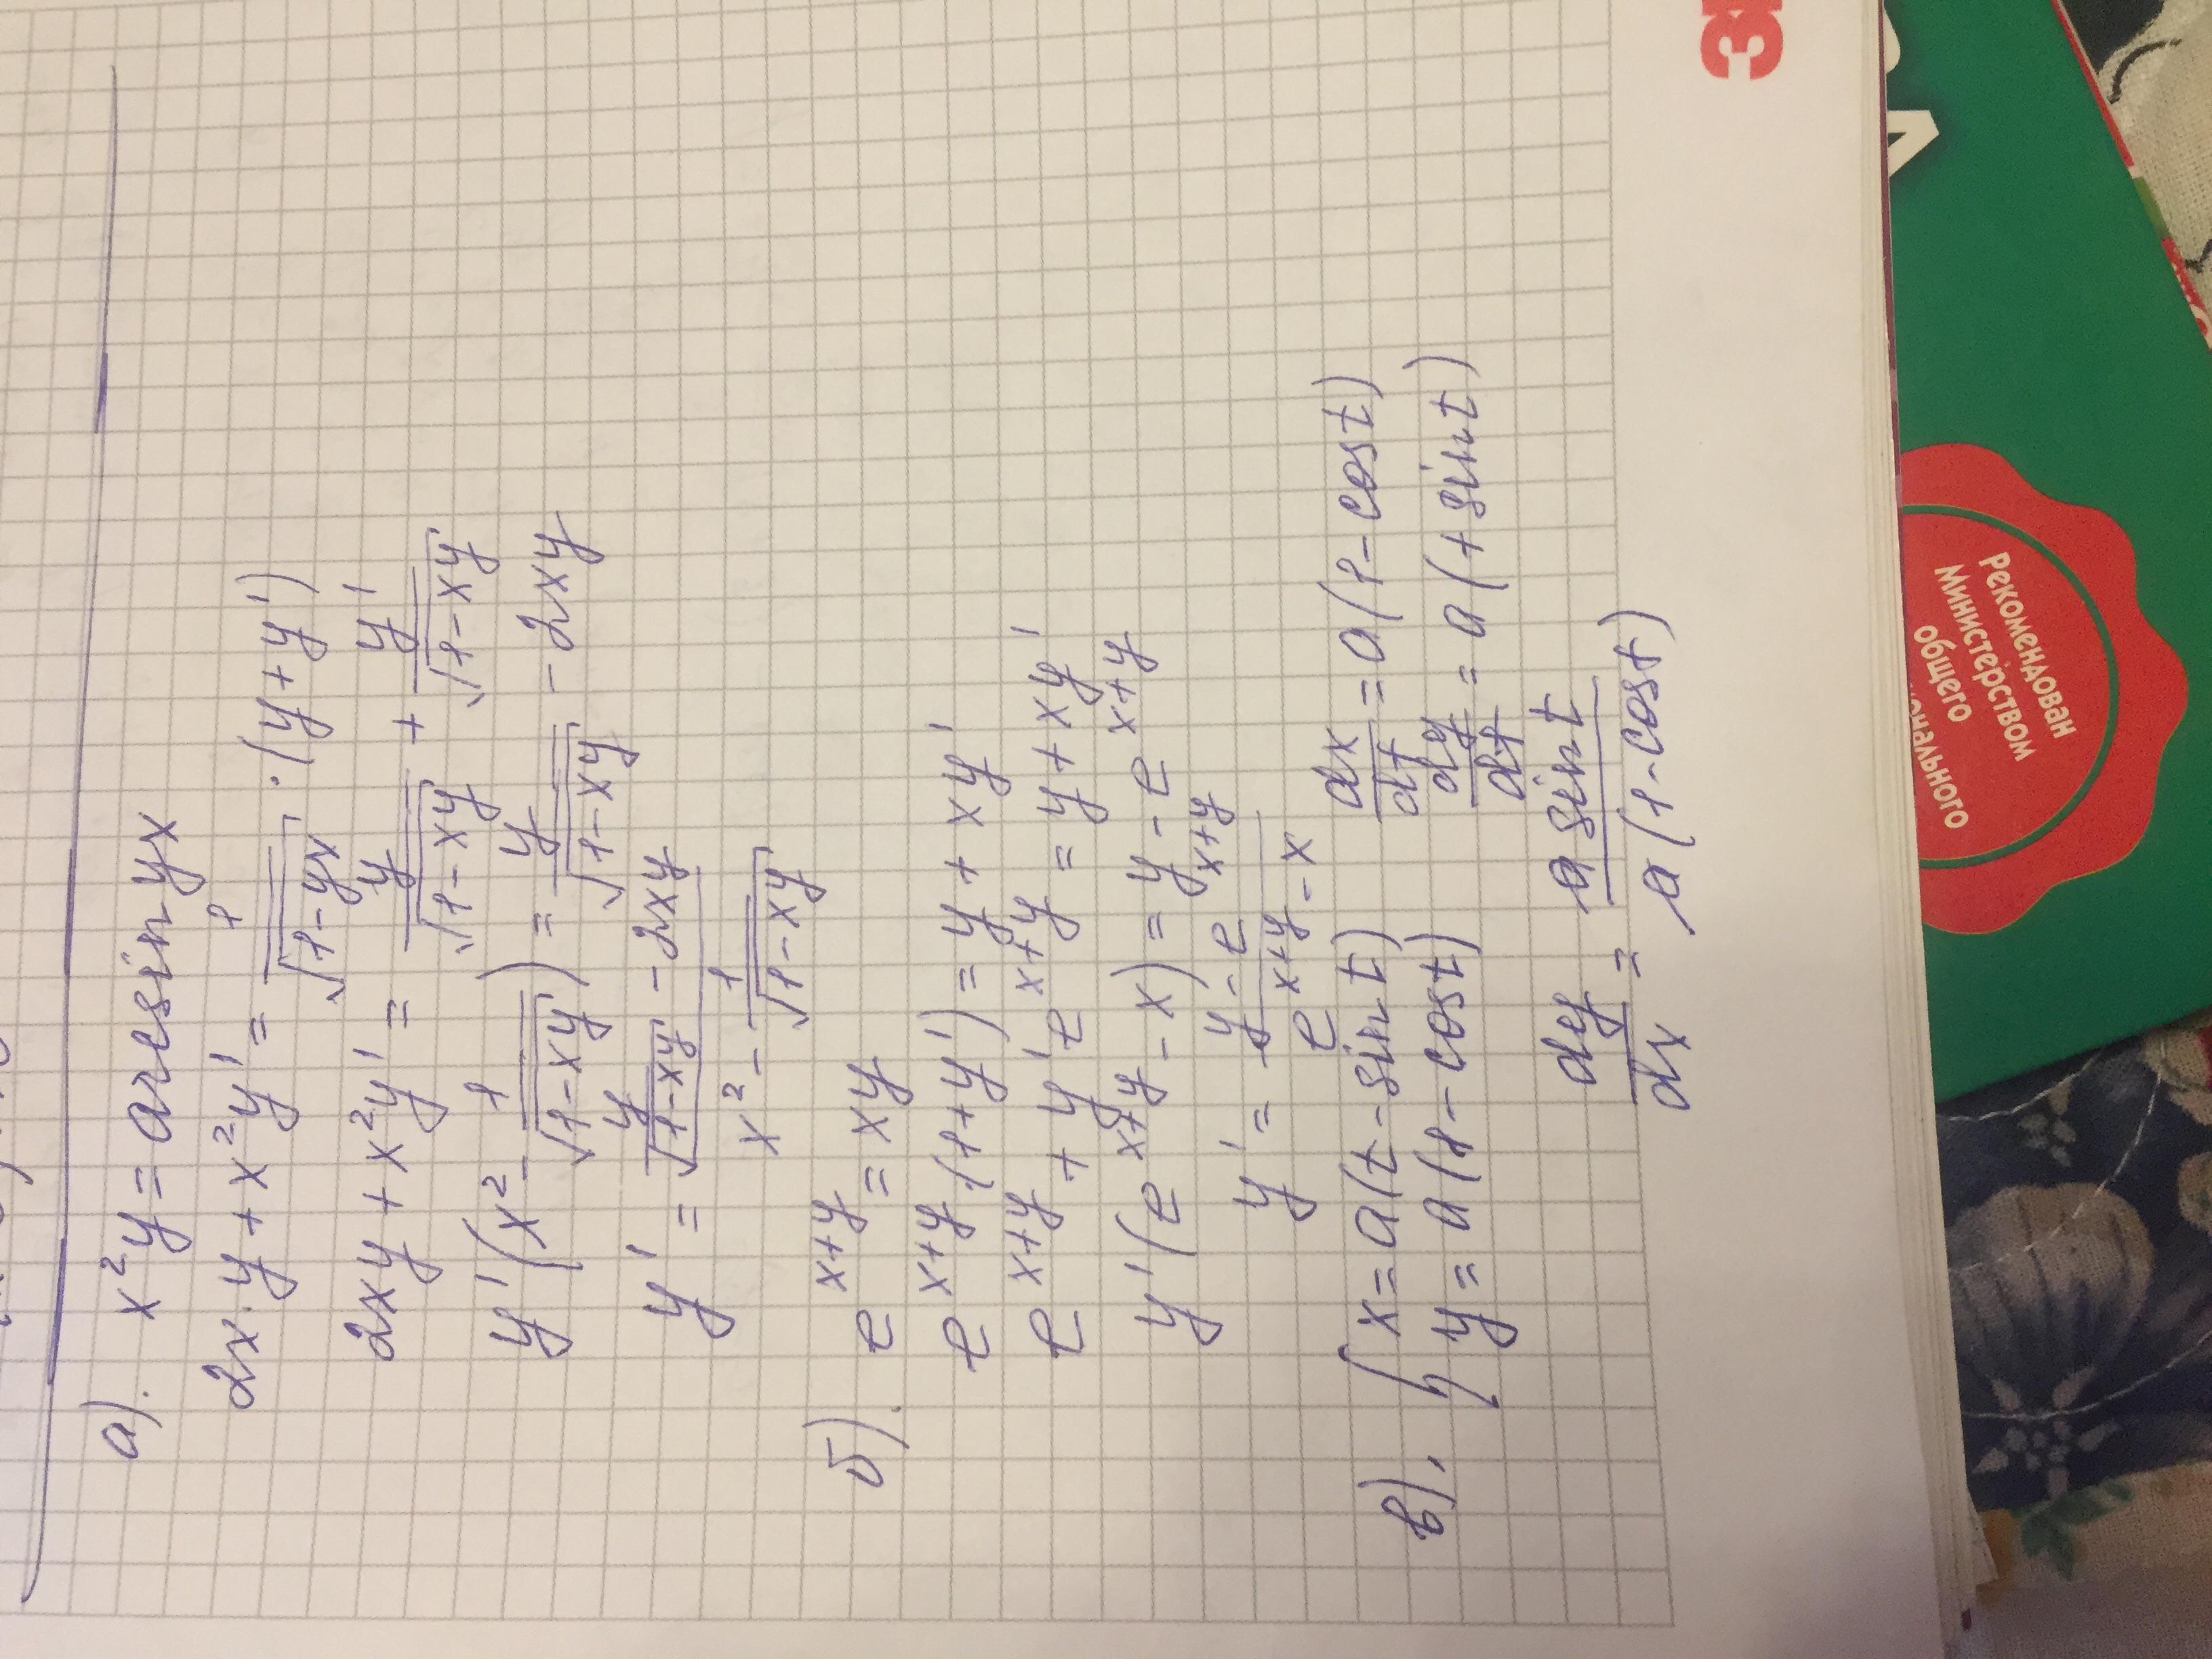 а). x²y = arcsin yx
2x·y + x²y' = 1/√(1-yx) · (y+y')
2xy + x²y' = y/√(1-xy) + y'/√(1-xy)
y'(x² - 1/√(1-xy)) = y/√(1-xy) - 2xy
y' = (y/√(1-xy) - 2xy)/(x² - 1/√(1-xy))
б). e^(x+y) = xy
e^(x+y)·(1+y') = y + xy'
e^(x+y) + y'e^(x+y) = y + xy'
y'(e^(x+y) - x) = y - e^(x+y)
y' = (y - e^(x+y))/(e^(x+y) - x)
в). { x = a(t - sin t) dx/dt = a(1 - cost)
y = a(1 - cost) dy/dt = a(+ sin t)
dy/dx = a sin t/a(1-cost)
Рекомендован
Министерством
общего